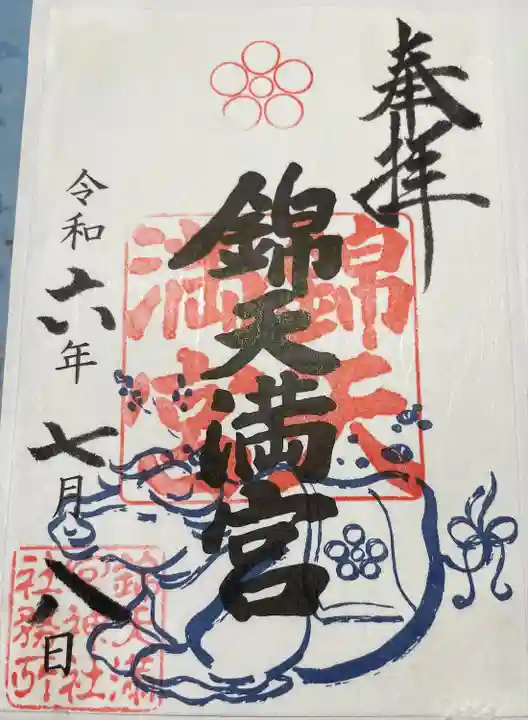 奉拝
錦天満宮
錦天満宮
令和六年七月八日
錦天満
宮神社
社務所